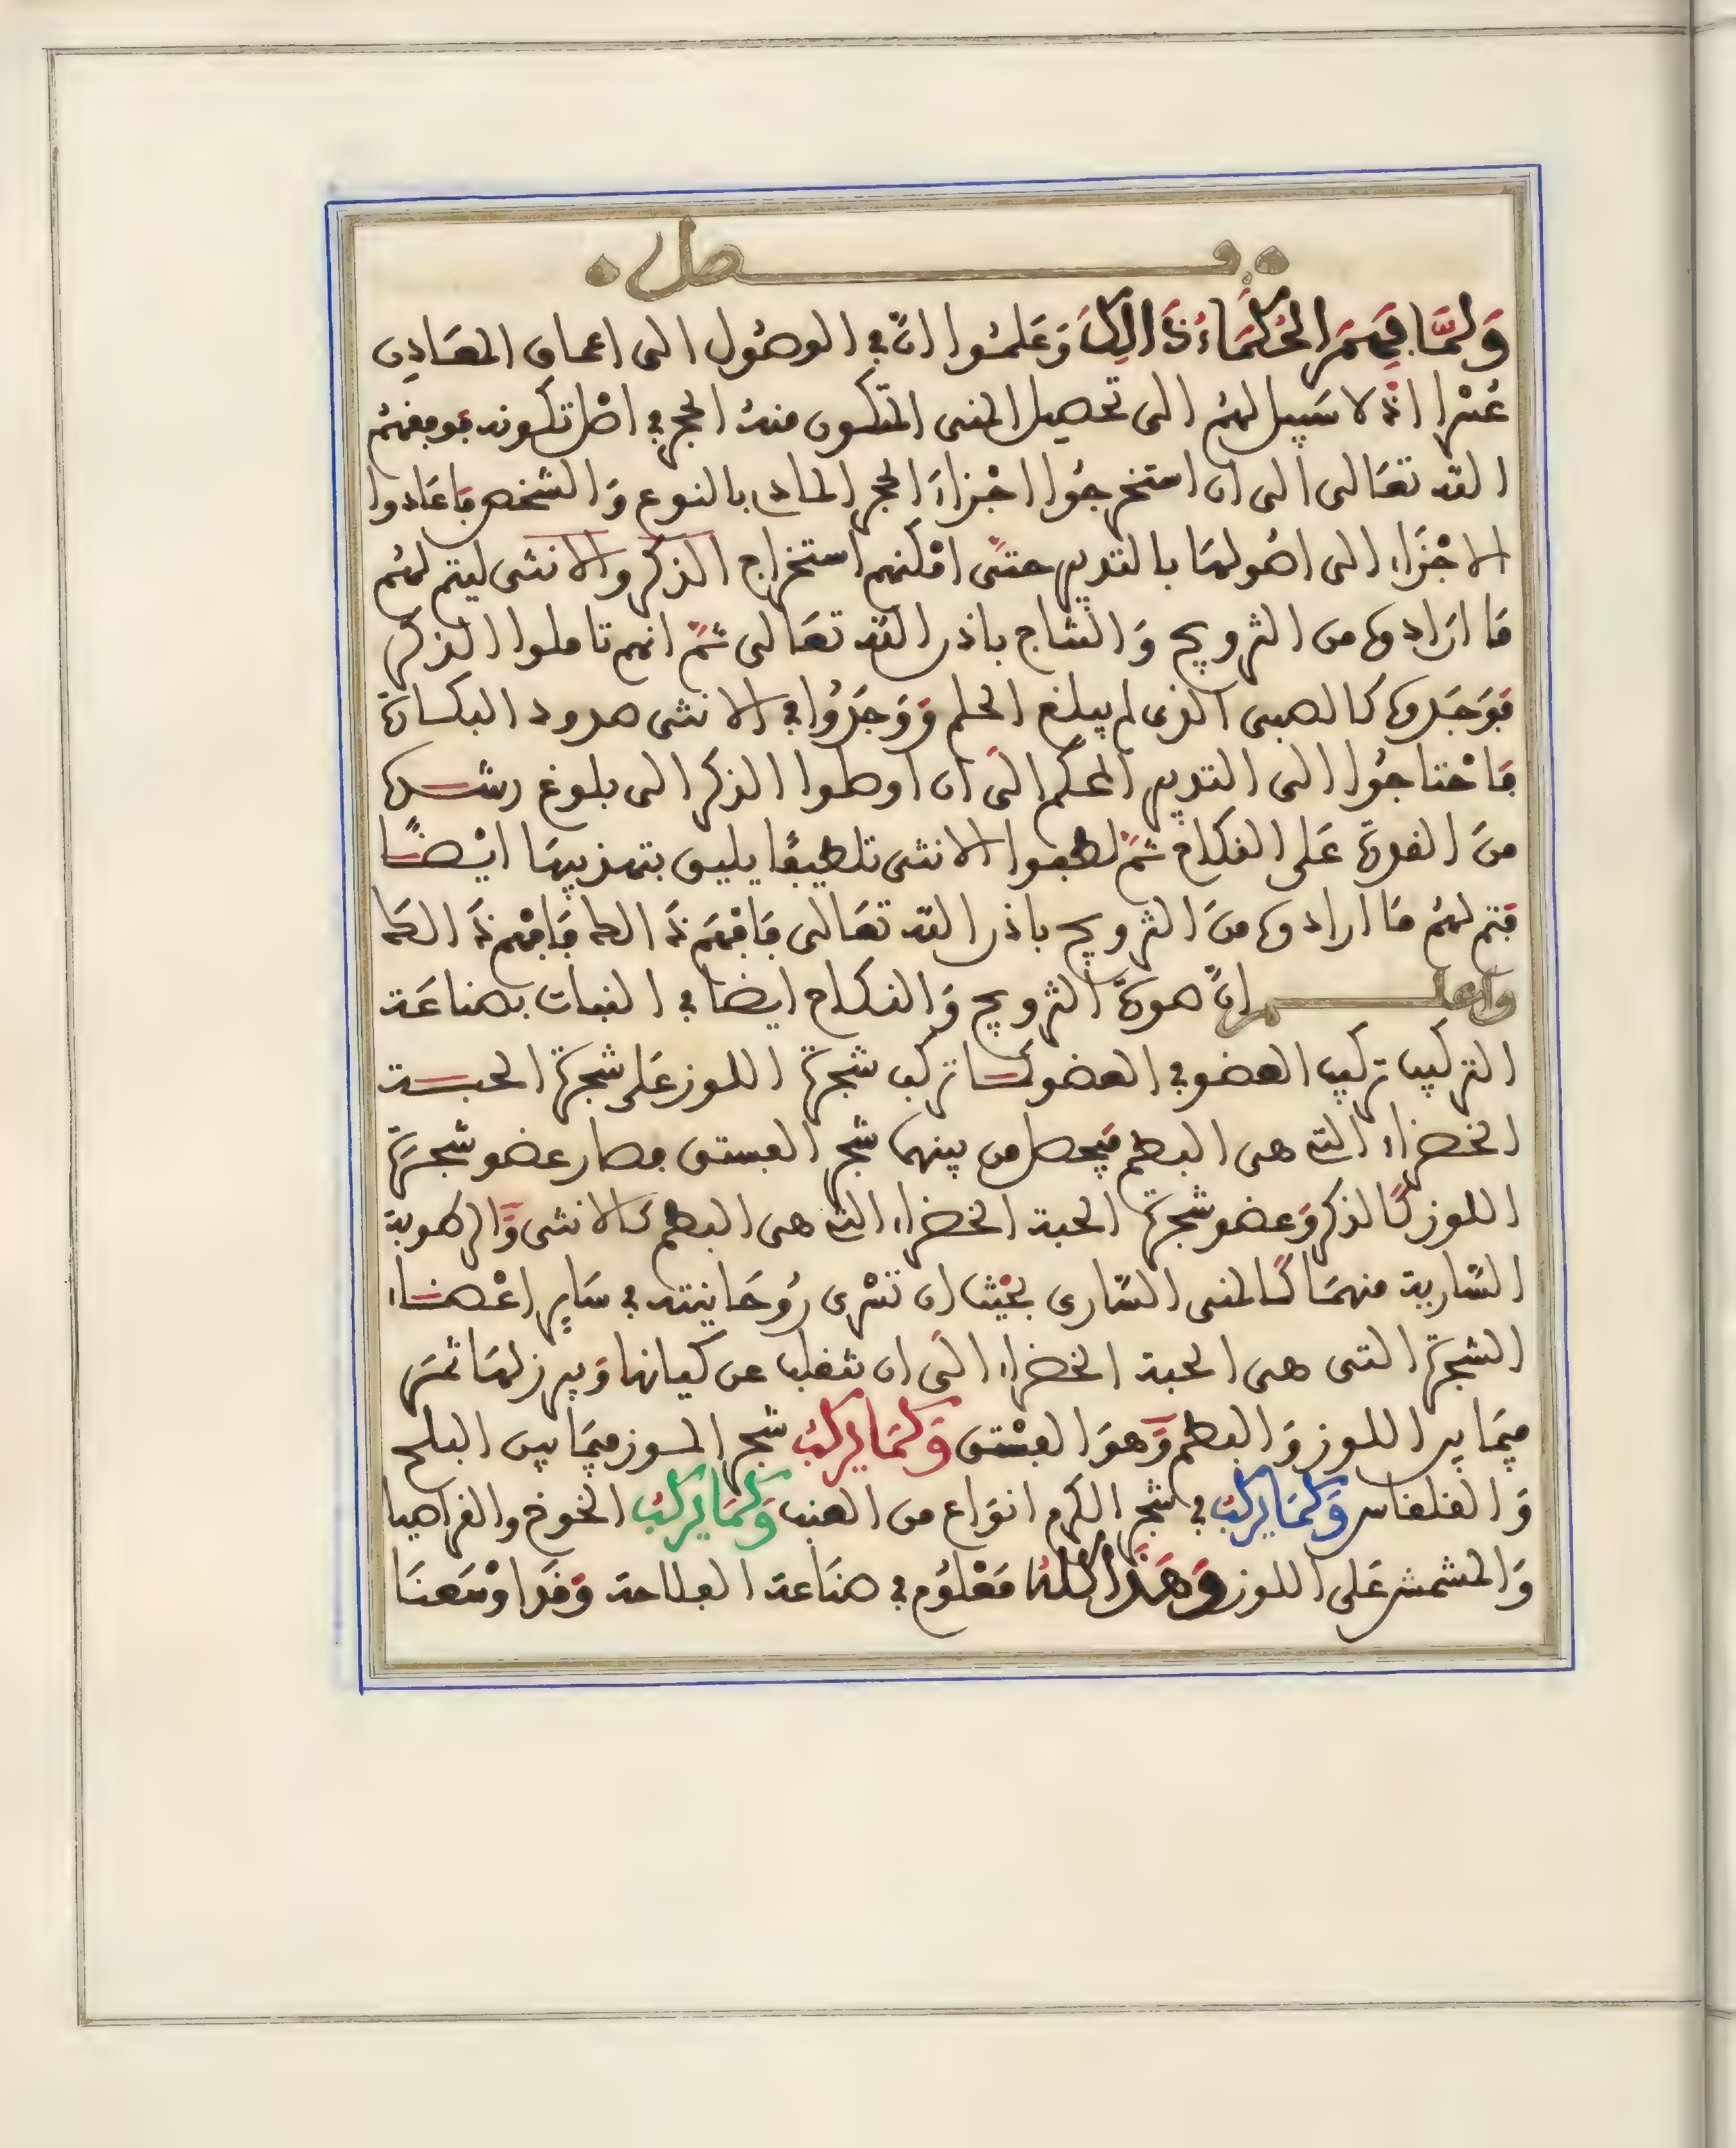 فصل
وَلَمَّا فَهِمَ الحُكَمَاءُ ذَالِكَ وَعَلِمُوا انَّ في الوصُول الى اعماق المعَادن
عُسْرا اذْ لا سَبِيل لهُم الى تحصيل المنى المتكون منهُ الحجر في اصْل تكونه فوفقهُم
الله تعَالى الى ان استخرجُوا اجْزاءَ الحجر المادى بالنوع وَالشخص فاعَادوا
الاجْزَاء الى اصُولهَا بالتدبير حتَّى امْكنهم استخراج الذكر والانثى ليتم لهُم
مَا ارَادوه من التزويج وَالنتاج باذن الله تعَالى ثمَّ انهم تاملوا الذكر
فوَجَدوه كالصبى الذى لم يبلغ الحلم وَوَجَدُوا في الانثى حدود البكارة
فاحْتاجُوا الى التدبير المحكم الَى ان اوصلوا الذكر الى بلوغ رشده
منَ القدرة عَلى النكاح ثمَّ لطفوا الانثى تلطيفًا يليق بتهذيبهَا ايْضًا
فتم لهُم مَا ارادوه منَ التزويج باذن الله تعَالى فَافْهَم ذَالك فَافْهم ذَالك
وَاعلم انَّ صورَة التزويج وَالنكاح ايضا في النبات بصناعَة
التركيب تركيب العضو في العضو كما تركب شجرة اللوز عَلى شجرة الحبة
الخضراء التي هى البطم فيحصل من بينهما شجر الفستق فصار عضو شجرة
اللوز كَالذكر وَعضو شجرة الحبة الخضراء التي هى البطم كالانثى وَالرطوبة
السَّارية منهمَا كَالمنى السَّارى بحَيْث ان تسْرى رُوحَانيته في سَاير اعْضاء
الشجرة التى هى الحبة الخضراء الَى ان تنقلب عن كيانها وَيبرز لهَا ثمَر
فيمَا بين اللوز وَالبطم وَهوَ الفسْتق وَكمَا يركبُ شجر الموز فيمَا بين البلح
وَالقلقاس وَكمَا يركبُ في شجر الكرم انوَاع من العنب وَكمَا يركبُ الخوخ والقراصيا
وَالمشمش عَلى اللوز وَهَذا كلهُ مَعْلوُم في صنَاعة الفلاحة وَقد اوْسَعنَا